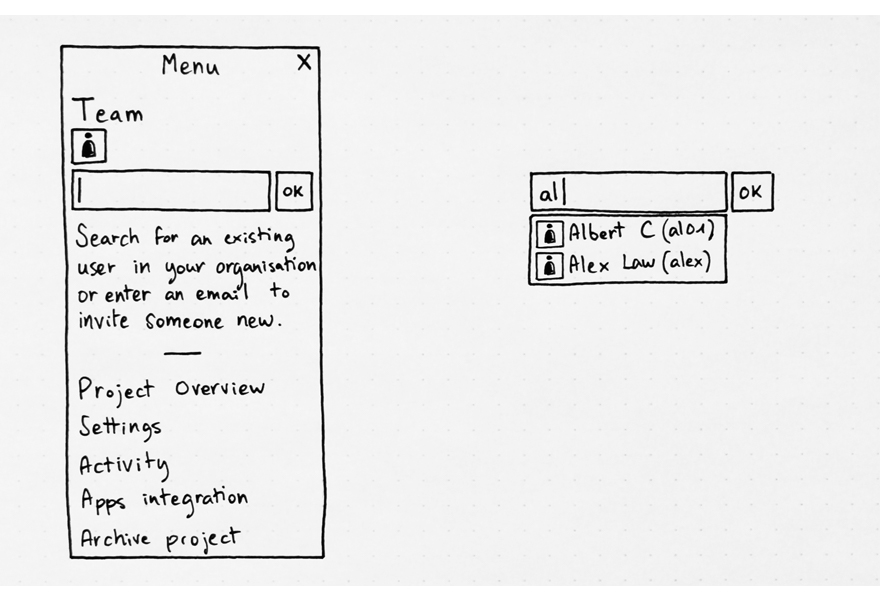 Menu X
Team
OK
Search for an existing
user in your organisation
or enter an email to
invite someone new.
Project Overview
Settings
Activity
Apps integration
Archive project
al
OK
Albert C (al01)
Alex Law (alex)